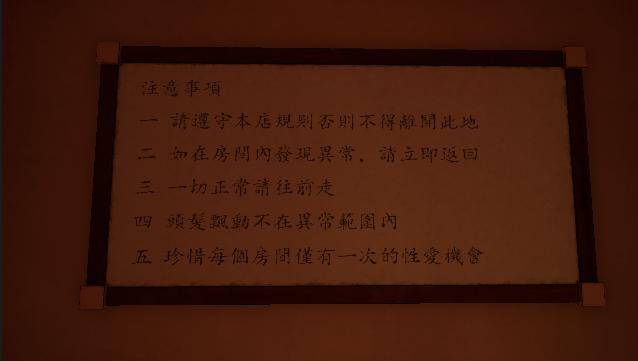 注意事項
一 請遵守本店規則否則不得離開此地
二 如在房間內發現異常，請立即返回
三 一切正常請往前走
四 頭髮飄動不在異常範圍內
五 珍惜每個房間僅有一次的性愛機會